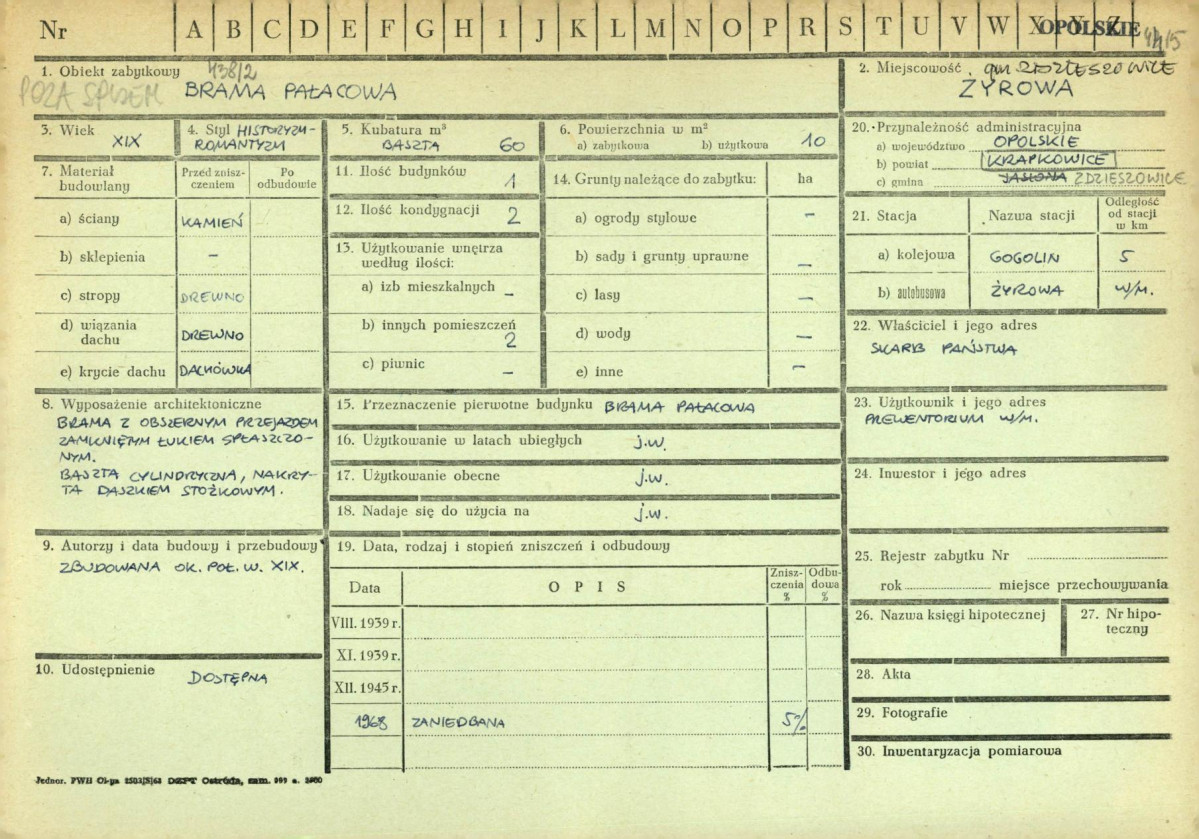 Nr A B C D E F G H I J K L M N O P R S T U V W X Y Z OPOLSKIE
1. Obiekt zabytkowy 438/2
POZA SPISEM BRAMA PAŁACOWA
2. Miejscowość gm ZDZIESZOWICE
ŻYROWA
3. Wiek
XIX
4. Styl HISTORYZM-
ROMANTYZM
5. Kubatura m³
BASZTA 60
6. Powierzchnia w m²
a) zabytkowa b) użytkowa 10
7. Materiał
budowlany
Przed znisz-
czeniem
Po
odbudowie
a) ściany KAMIEŃ
b) sklepienia –
c) stropy DREWNO
d) wiązania
dachu DREWNO
e) krycie dachu DACHÓWKA
8. Wyposażenie architektoniczne
BRAMA Z OBSZERNYM PRZEJAZDEM
ZAMKNIĘTYM ŁUKIEM SPŁASZCZO-
NYM.
BASZTA CYLINDRYCZNA, NAKRY-
TA DASZKIEM STOŻKOWYM.
9. Autorzy i data budowy i przebudowy
ZBUDOWANA OK. POŁ. W. XIX.
10. Udostępnienie DOSTĘPNA
11. Ilość budynków 1
12. Ilość kondygnacji 2
13. Użytkowanie wnętrza
według ilości:
a) izb mieszkalnych –
b) innych pomieszczeń
2
c) piwnic –
14. Grunty należące do zabytku: ha
a) ogrody stylowe –
b) sady i grunty uprawne –
c) lasy –
d) wody –
e) inne –
15. Przeznaczenie pierwotne budynku BRAMA PAŁACOWA
16. Użytkowanie w latach ubiegłych j.w.
17. Użytkowanie obecne j.w.
18. Nadaje się do użycia na j.w.
19. Data, rodzaj i stopień zniszczeń i odbudowy
Data OPIS
Znisz-
czenia
%
Odbu-
dowa
%
VIII. 1939 r.
XI. 1939 r.
XII. 1945 r.
1968 ZANIEDBANA 5%
20. Przynależność administracyjna
a) województwo OPOLSKIE
b) powiat KRAPKOWICE
c) gmina JASIONA ZDZIESZOWICE
21. Stacja Nazwa stacji
Odległość
od stacji
w km
a) kolejowa GOGOLIN 5
b) autobusowa ŻYROWA W/M.
22. Właściciel i jego adres
SKARB PAŃSTWA
23. Użytkownik i jego adres
PREWENTORIUM W/M.
24. Inwestor i jego adres
25. Rejestr zabytku Nr
rok miejsce przechowywania
26. Nazwa księgi hipotecznej
27. Nr hipo-
teczny
28. Akta
29. Fotografie
30. Inwentaryzacja pomiarowa